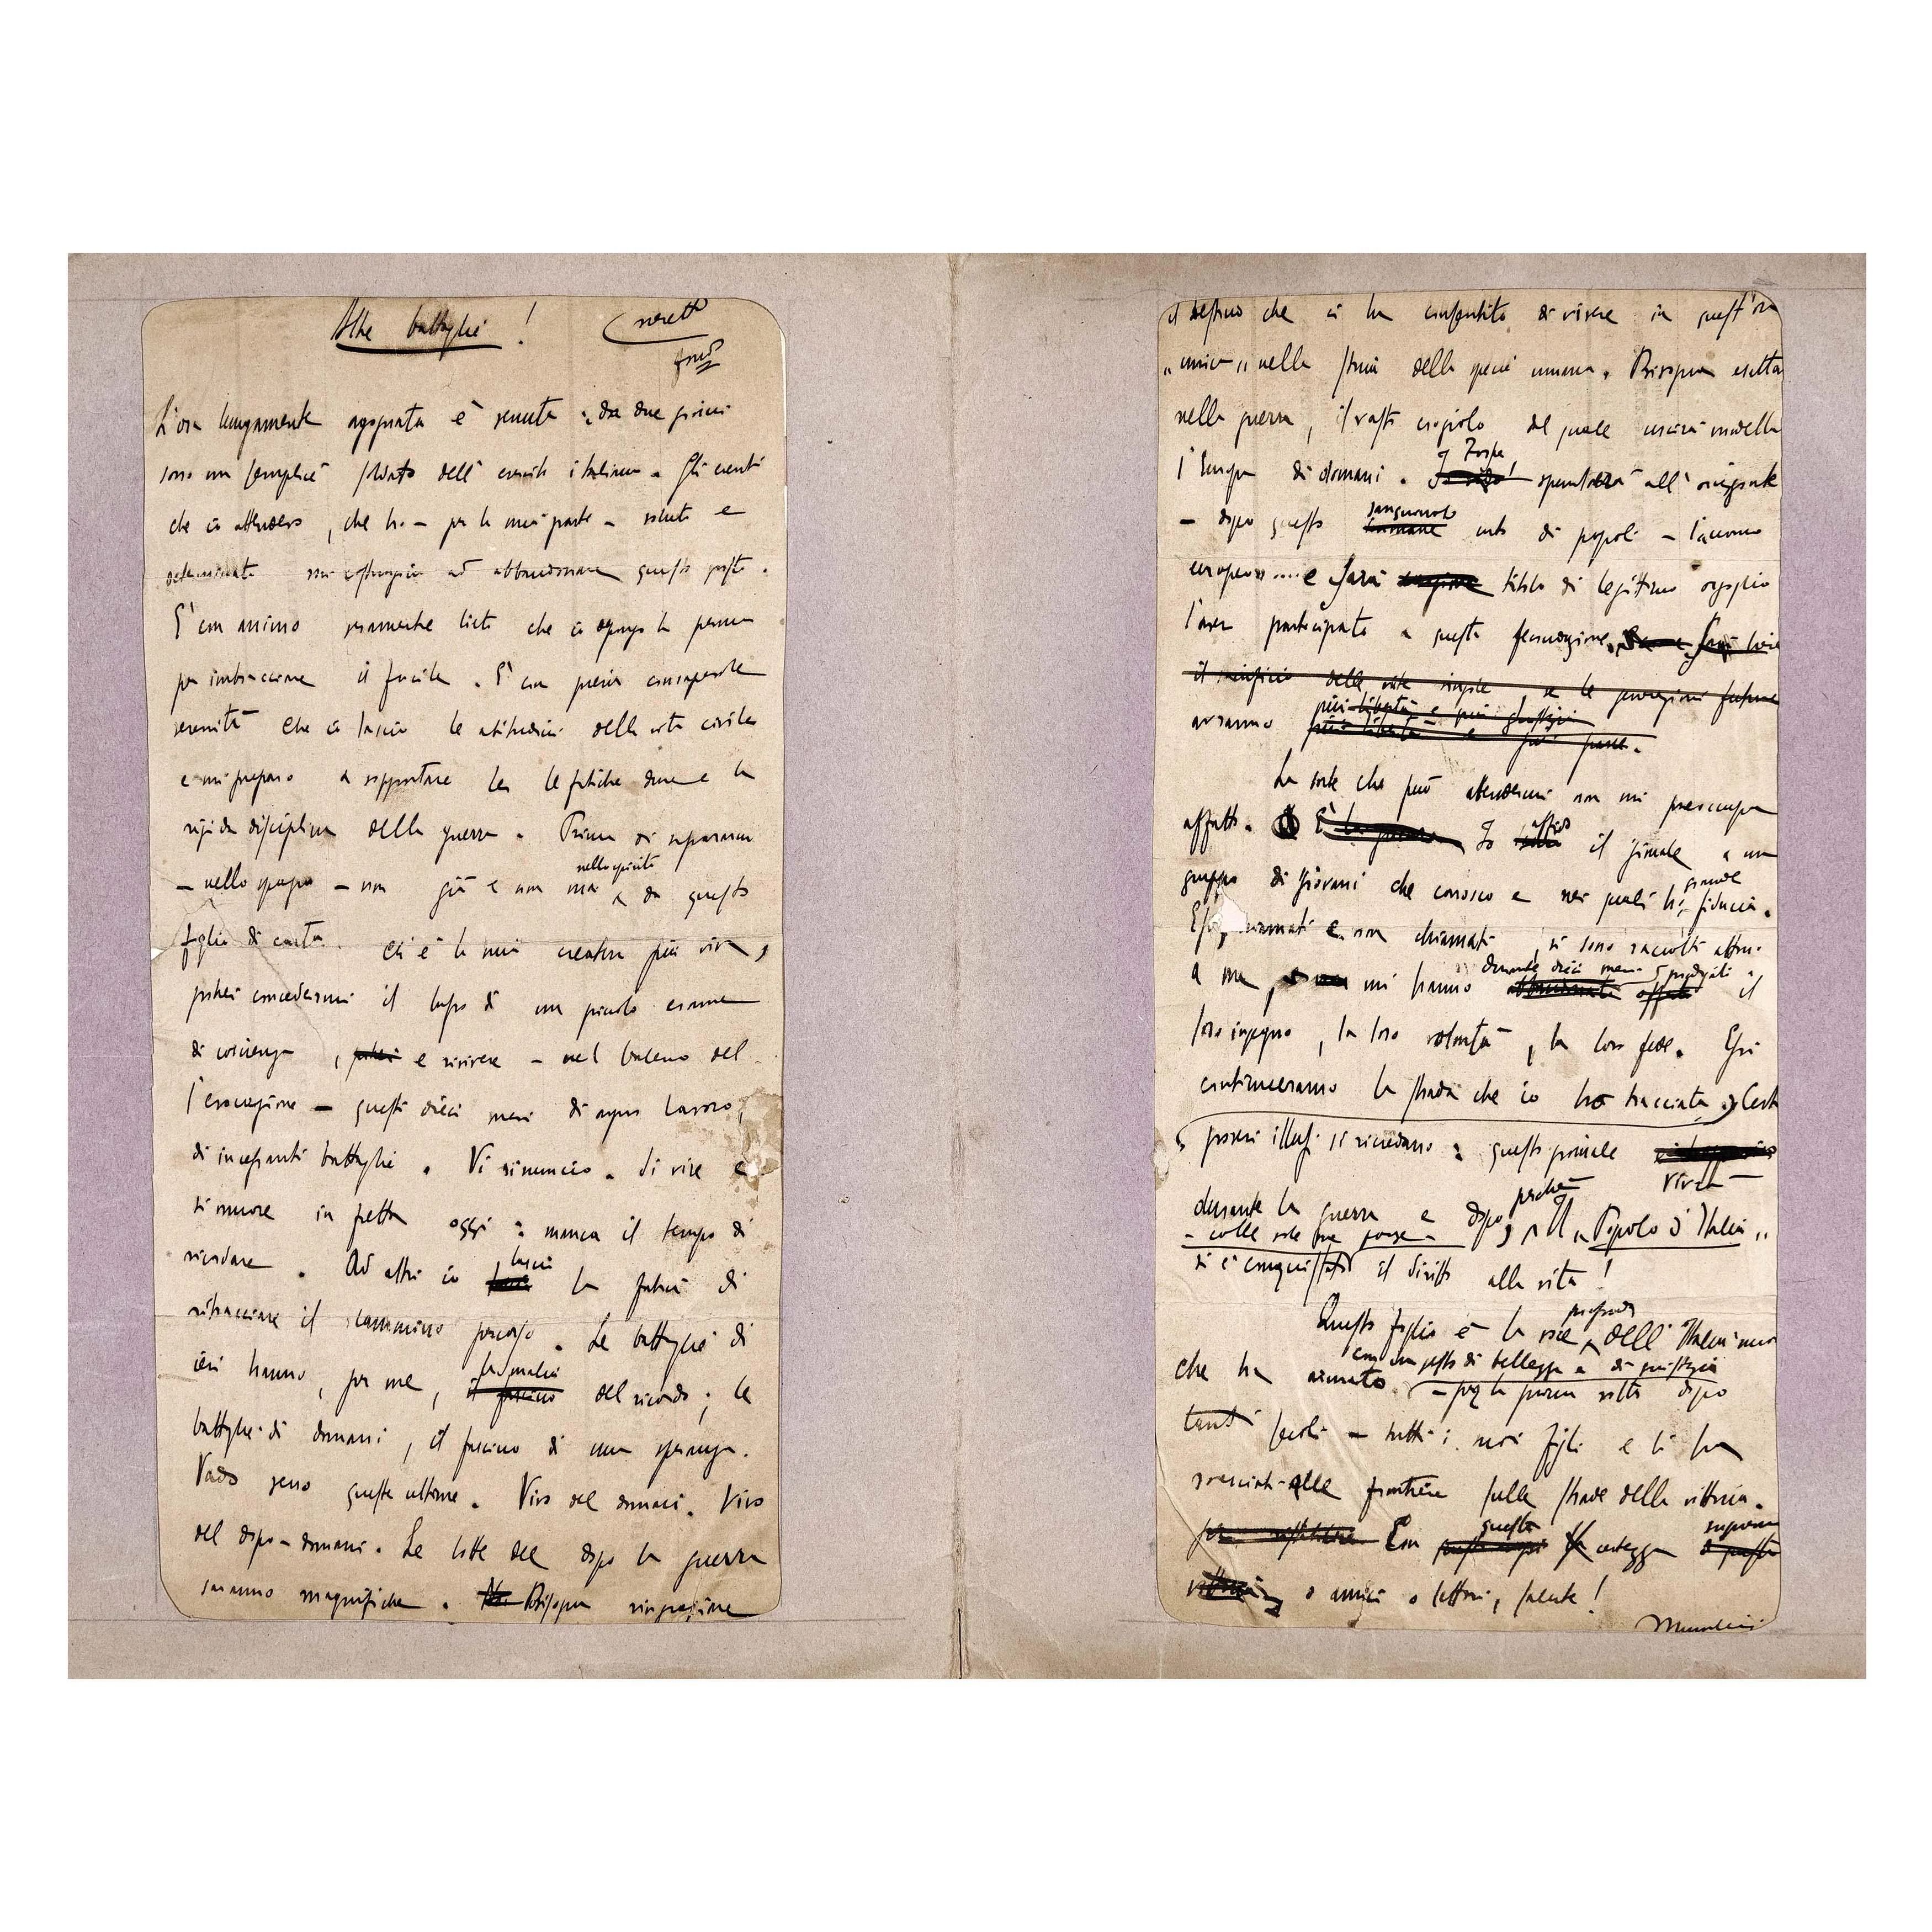 Altre battaglie!
neretto
L'ora lungamente agognata è venuta: da due giorni
sono un semplice soldato dell'esercito italiano. Gli eventi
che ci attendevo, che ho – per la mia parte – voluti e
determinati mi costringono ad abbandonare questo posto.
È con animo veramente lieto che io depongo la penna
per imbracciare il fucile. È con piena consapevole
serenità che io lascio le abitudini della vita civile
e mi preparo a sopportare le fatiche dure e la
rigida disciplina della guerra. Prima di separarmi
nello spirito
– nello spazio – non già e non mai da questo
foglio di carta. ch'è la mia creatura più viva,
potrei concedermi il lusso di un piccolo esame
di coscienza, potrei e rivivere – nel baleno del
l'evocazione – questi dieci mesi di aspro lavoro,
di incessanti battaglie. Vi rinuncio. Si vive e
si muore in fretta oggi: manca il tempo di
lascio
ricordare. Ad altri io la fatica di
ritracciare il cammino percorso. Le battaglie di
la malia
ieri hanno, per me, il fascino del ricordo; le
battaglie di domani, il fascino di una speranza.
Vado verso queste ultime. Vivo del domani. Vivo
del dopo-domani. Le lotte del dopo la guerra
saranno magnifiche. Bisogna ringraziare
il destino che ci ha consentito di vivere in quest'ora
„unica„ nella storia della specie umana. Bisogna
nella guerra, il vasto crogiolo dal quale uscirà modellata
l'Europa di domani. Forse spunterà all'orizzonte
sanguinoso
– dopo questo umane urto di popoli – l'uomo
europeo.... e sarà titolo di legittimo orgoglio
l'aver participato a questa fecondazione.
il sacrificio delle vite singole, se le generazioni future
più libertà e più giustizia
avranno più libertà e più pane.
La sorte che può attendermi non mi preoccupa
affido
affatto. È Io il giornale a un
grande
gruppo di giovani che conosco e nei quali ho fiducia.
Essi, chiamati e non chiamati, si sono raccolti attorno
durante dieci mesi prodigati
a me, mi hanno abbandonato offerto il
loro ingegno, la loro volontà, la loro fede. Essi
continueranno la strada che io ho tracciata. Certi
poveri illusi si ricredano: questo giornale
vivrà
perché
durante la guerra e dopo, Il „Popolo d'Italia„
– colle sole sue forze –
si è conquistato il diritto alla vita!
profonda
Questo foglio è la voce dell'Italia nuova
con un gesto di bellezza e di giustizia
che ha armato – per la prima volta dopo
tanti secoli – tutti i suoi figli e li ha
rovesciati alle frontiere sulle strade della vittoria.
questa suprema
Con certezza
vittoria, o amici o lettori, salute!
Mussolini